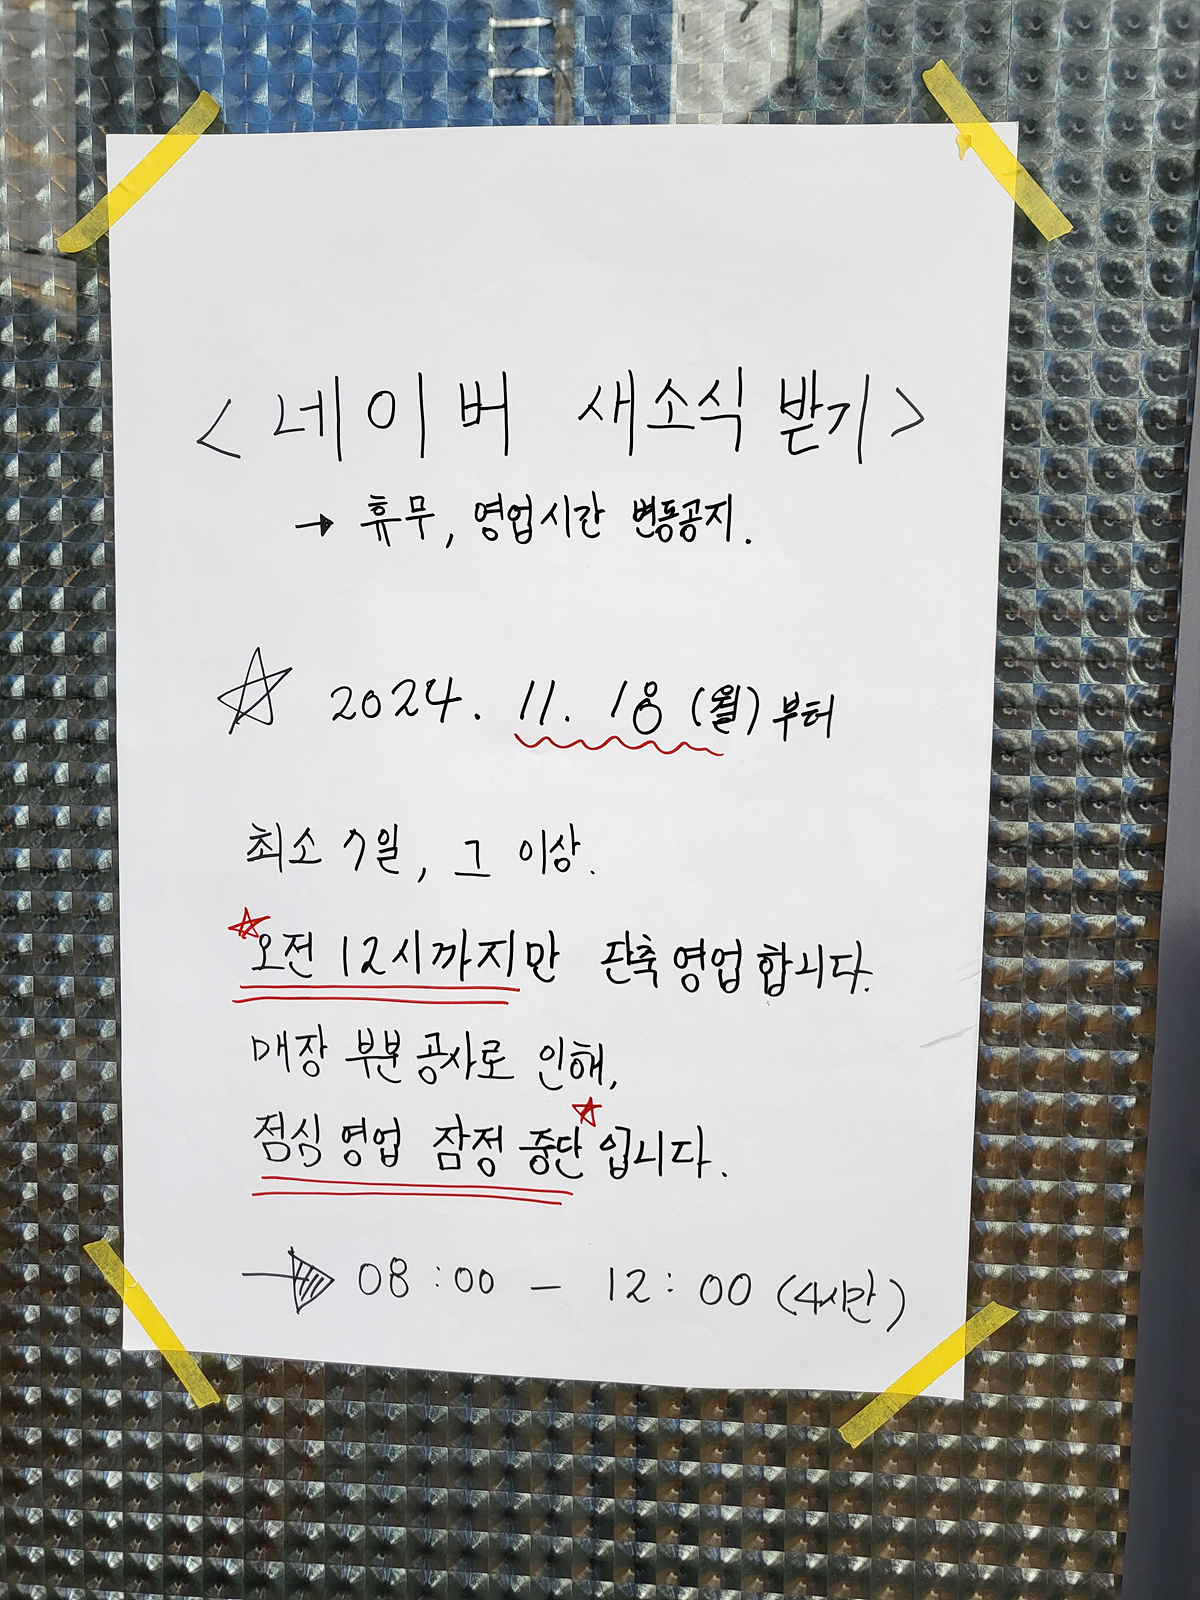 <네이버 새소식 받기>
→ 휴무, 영업시간 변동공지.
☆ 2024. 11. 18 (월) 부터
최소 7일, 그 이상.
☆오전 12시까지만 단축 영업합니다.
매장 부분 공사로 인해,
점심 영업 잠정 중단☆입니다.
→ 08:00 - 12:00 (4시간)